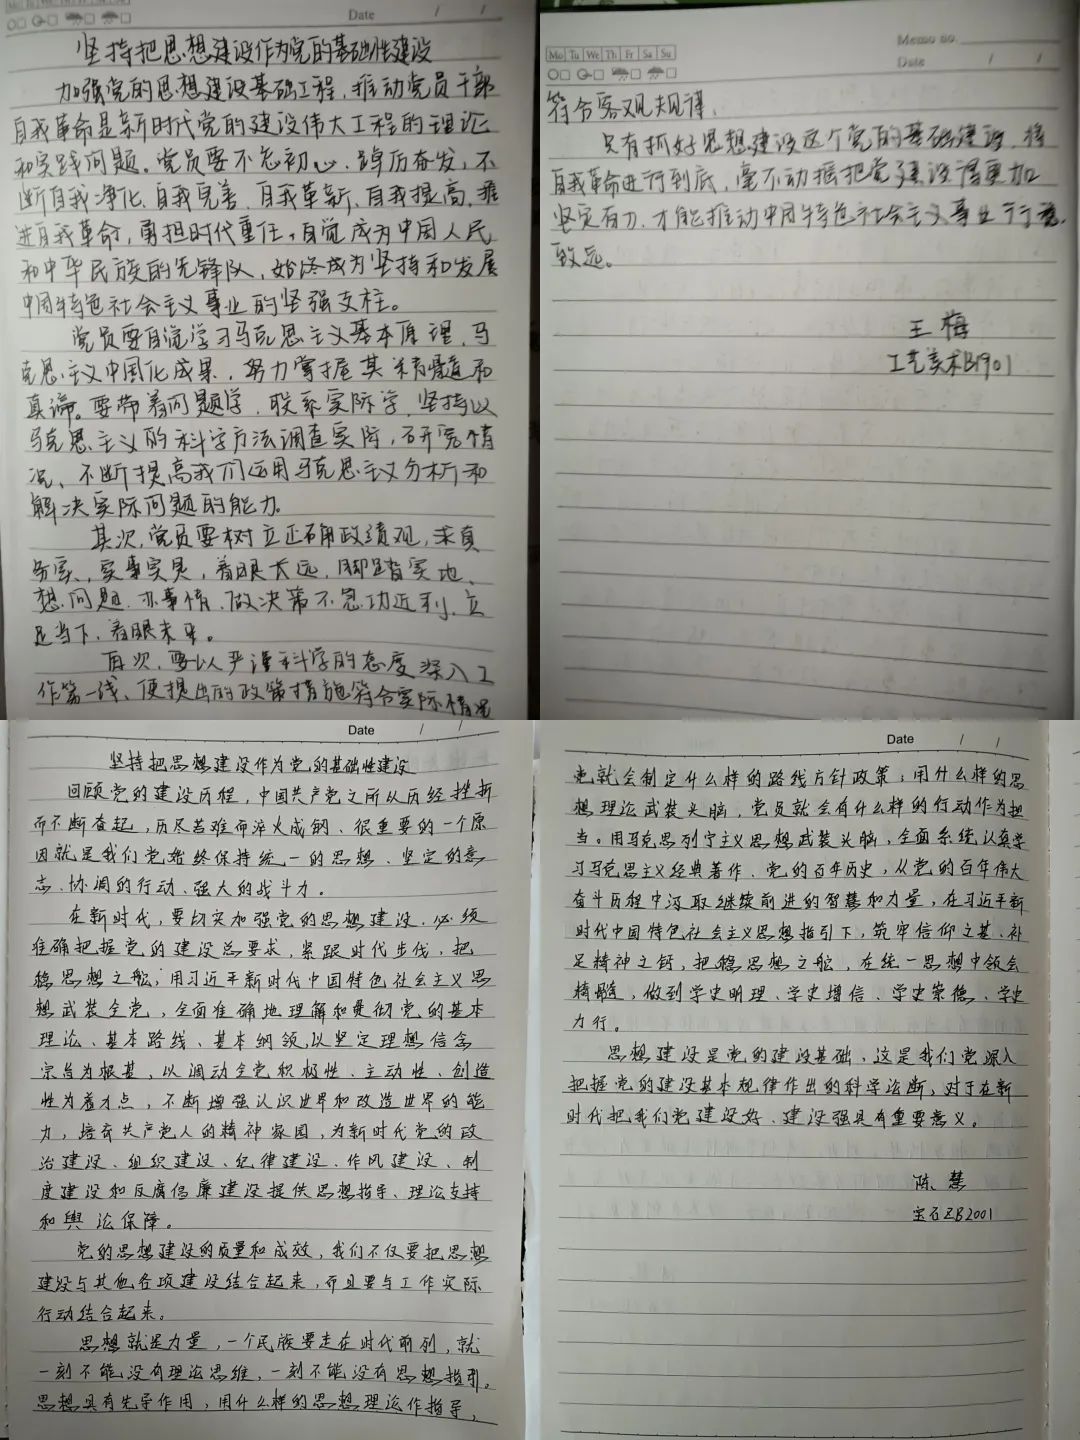 Mo Tu We Th Fr Sa Su
Date / /
坚持把思想建设作为党的基础性建设
加强党的思想建设基础工程，推动党员干部
自我革命是新时代党的建设伟大工程的理论
和实践问题。党员要不忘初心、踔厉奋发，不
断自我净化、自我完善、自我革新、自我提高，推
进自我革命，勇担时代重任，自觉成为中国人民
和中华民族的先锋队，始终成为坚持和发展
中国特色社会主义事业的坚强支柱。
党员要自觉学习马克思主义基本原理，马
克思主义中国化成果，努力掌握其精髓和
真谛。要带着问题学，联系实际学，坚持以
马克思主义的科学方法调查实际，研究情
况，不断提高我们运用马克思主义分析和
解决实际问题的能力。
其次，党员要树立正确政绩观，求真
务实，实事实是，着眼长远，脚踏实地、
想问题、办事情、做决策不急功近利，立
足当下，着眼未来。
再次，要以严谨科学的态度深入工
作第一线、使提出的政策措施符合实际情况
Memo no.
Mo Tu We Th Fr Sa Su
Date / /
符合客观规律。
只有抓好思想建设这个党的基础建设，将
自我革命进行到底，毫不动摇把党建设得更加
坚定有力，才能推动中国特色社会主义事业行稳
致远。
王梅
工艺美术B1901
Date / /
坚持把思想建设作为党的基础性建设
回顾党的建设历程，中国共产党之所从历经挫折
而不断奋起，历尽苦难而淬火成钢、很重要的一个原
因就是我们党始终保持统一的思想、坚定的意
志、协调的行动、强大的战斗力。
在新时代，要切实加强党的思想建设，必须
准确把握党的建设总要求，紧跟时代步伐，把
稳思想之舵；用习近平新时代中国特色社会主义思
想武装全党，全面准确地理解和贯彻党的基本
理论、基本路线、基本纲领，以坚定理想信念
宗旨为根基，以调动全党积极性、主动性、创造
性为着力点，不断增强认识世界和改造世界的能
力，培育共产党人的精神家园，为新时代党的政
治建设、组织建设、纪律建设、作风建设、制
度建设和反腐倡廉建设提供思想指导、理论支持
和舆论保障。
党的思想建设的质量和成效，我们不仅要把思想
建设与其他各项建设结合起来，而且要与工作实际
行动结合起来。
思想就是力量，一个民族要走在时代前列，就
一刻不能没有理论思维，一刻不能没有思想指引。
思想具有先导作用，用什么样的思想理论作指导，
Date / /
党就会制定什么样的路线方针政策；用什么样的思
想理论武装头脑，党员就会有什么样的行动作为担
当。用马克思列宁主义思想武装头脑，全面系统认真学
习马克思主义经典著作、党的百年历史，从党的百年伟大
奋斗历程中汲取继续前进的智慧和力量，在习近平新
时代中国特色社会主义思想指引下，筑牢信仰之基、补
足精神之钙，把稳思想之舵，在统一思想中领会
精髓，做到学史明理、学史增信、学史崇德、学史
力行。
思想建设是党的建设基础，这是我们党深入
把握党的建设基本规律作出的科学论断，对于在新
时代把我们党建设好、建设强具有重要意义。
陈慧
宝石ZB2001